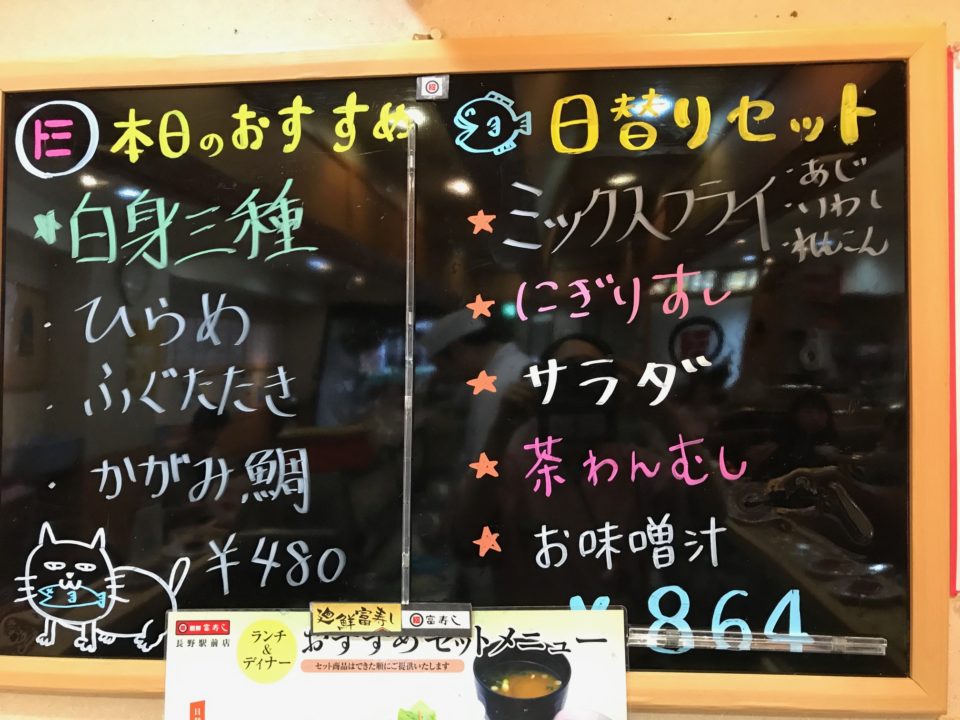 本日のおすすめ
白身三種
・ひらめ
・ふぐたたき
・かがみ鯛
¥480
日替りセット
★ミックスフライ
・あじ
・いわし
・れんこん
★にぎりすし
★サラダ
★茶わんむし
★お味噌汁
¥864
廻鮮富寿し
富寿し
富寿し
長野駅前店
ランチ
&
ディナー
おすすめセットメニュー
セット商品はできた順にご提供いたします